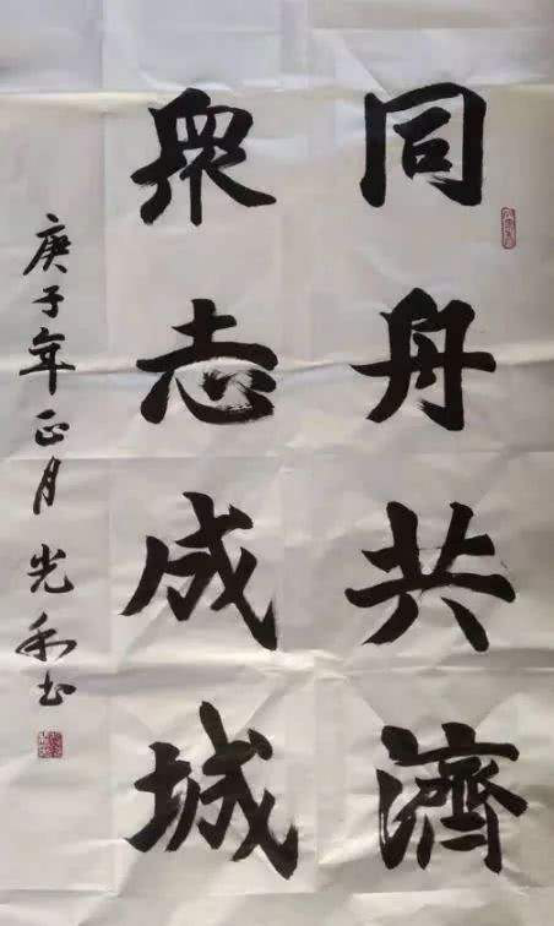 同舟共濟
衆志成城
庚子年正月光利书